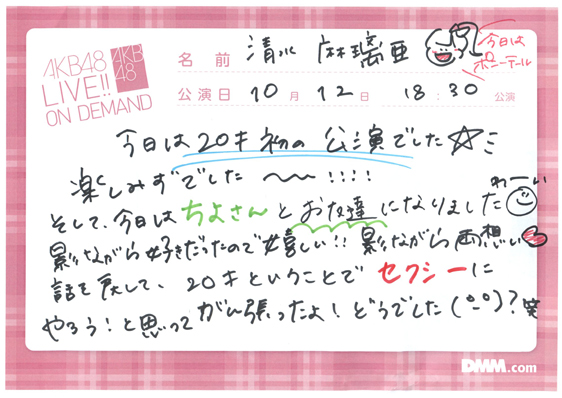 AKB48
LIVE!!
ON DEMAND
AKB
48
名前 清水 麻璃亜
今日は
ポニーテール
公演日 10月 12日 18:30 公演
今日は20才初の公演でした☆ミ
楽しみずでした 〜〜!!!!
わーい
そして、今日はちよさんとお友達になりました
影ながら好きだったので嬉しい!! 影ながら両想い
話を戻して、20才ということでセクシーに
やろう!と思って がん張ったよ! どうでした(°-°)?笑
DMM.com